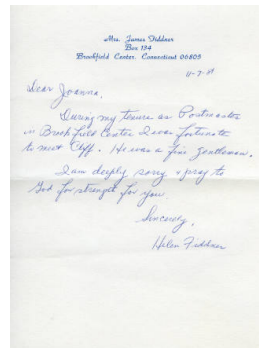 Mrs. James Fiddner
Box 134
Brookfield Center, Connecticut 06805
Dear Joanna,
During my tenure as Postmaster
in Brookfield Center I was fortunate
to meet Cliff. He was a fine gentleman.
I am deeply sorry & pray to
God for strength for you.
Sincerely,
Helen Fiddner